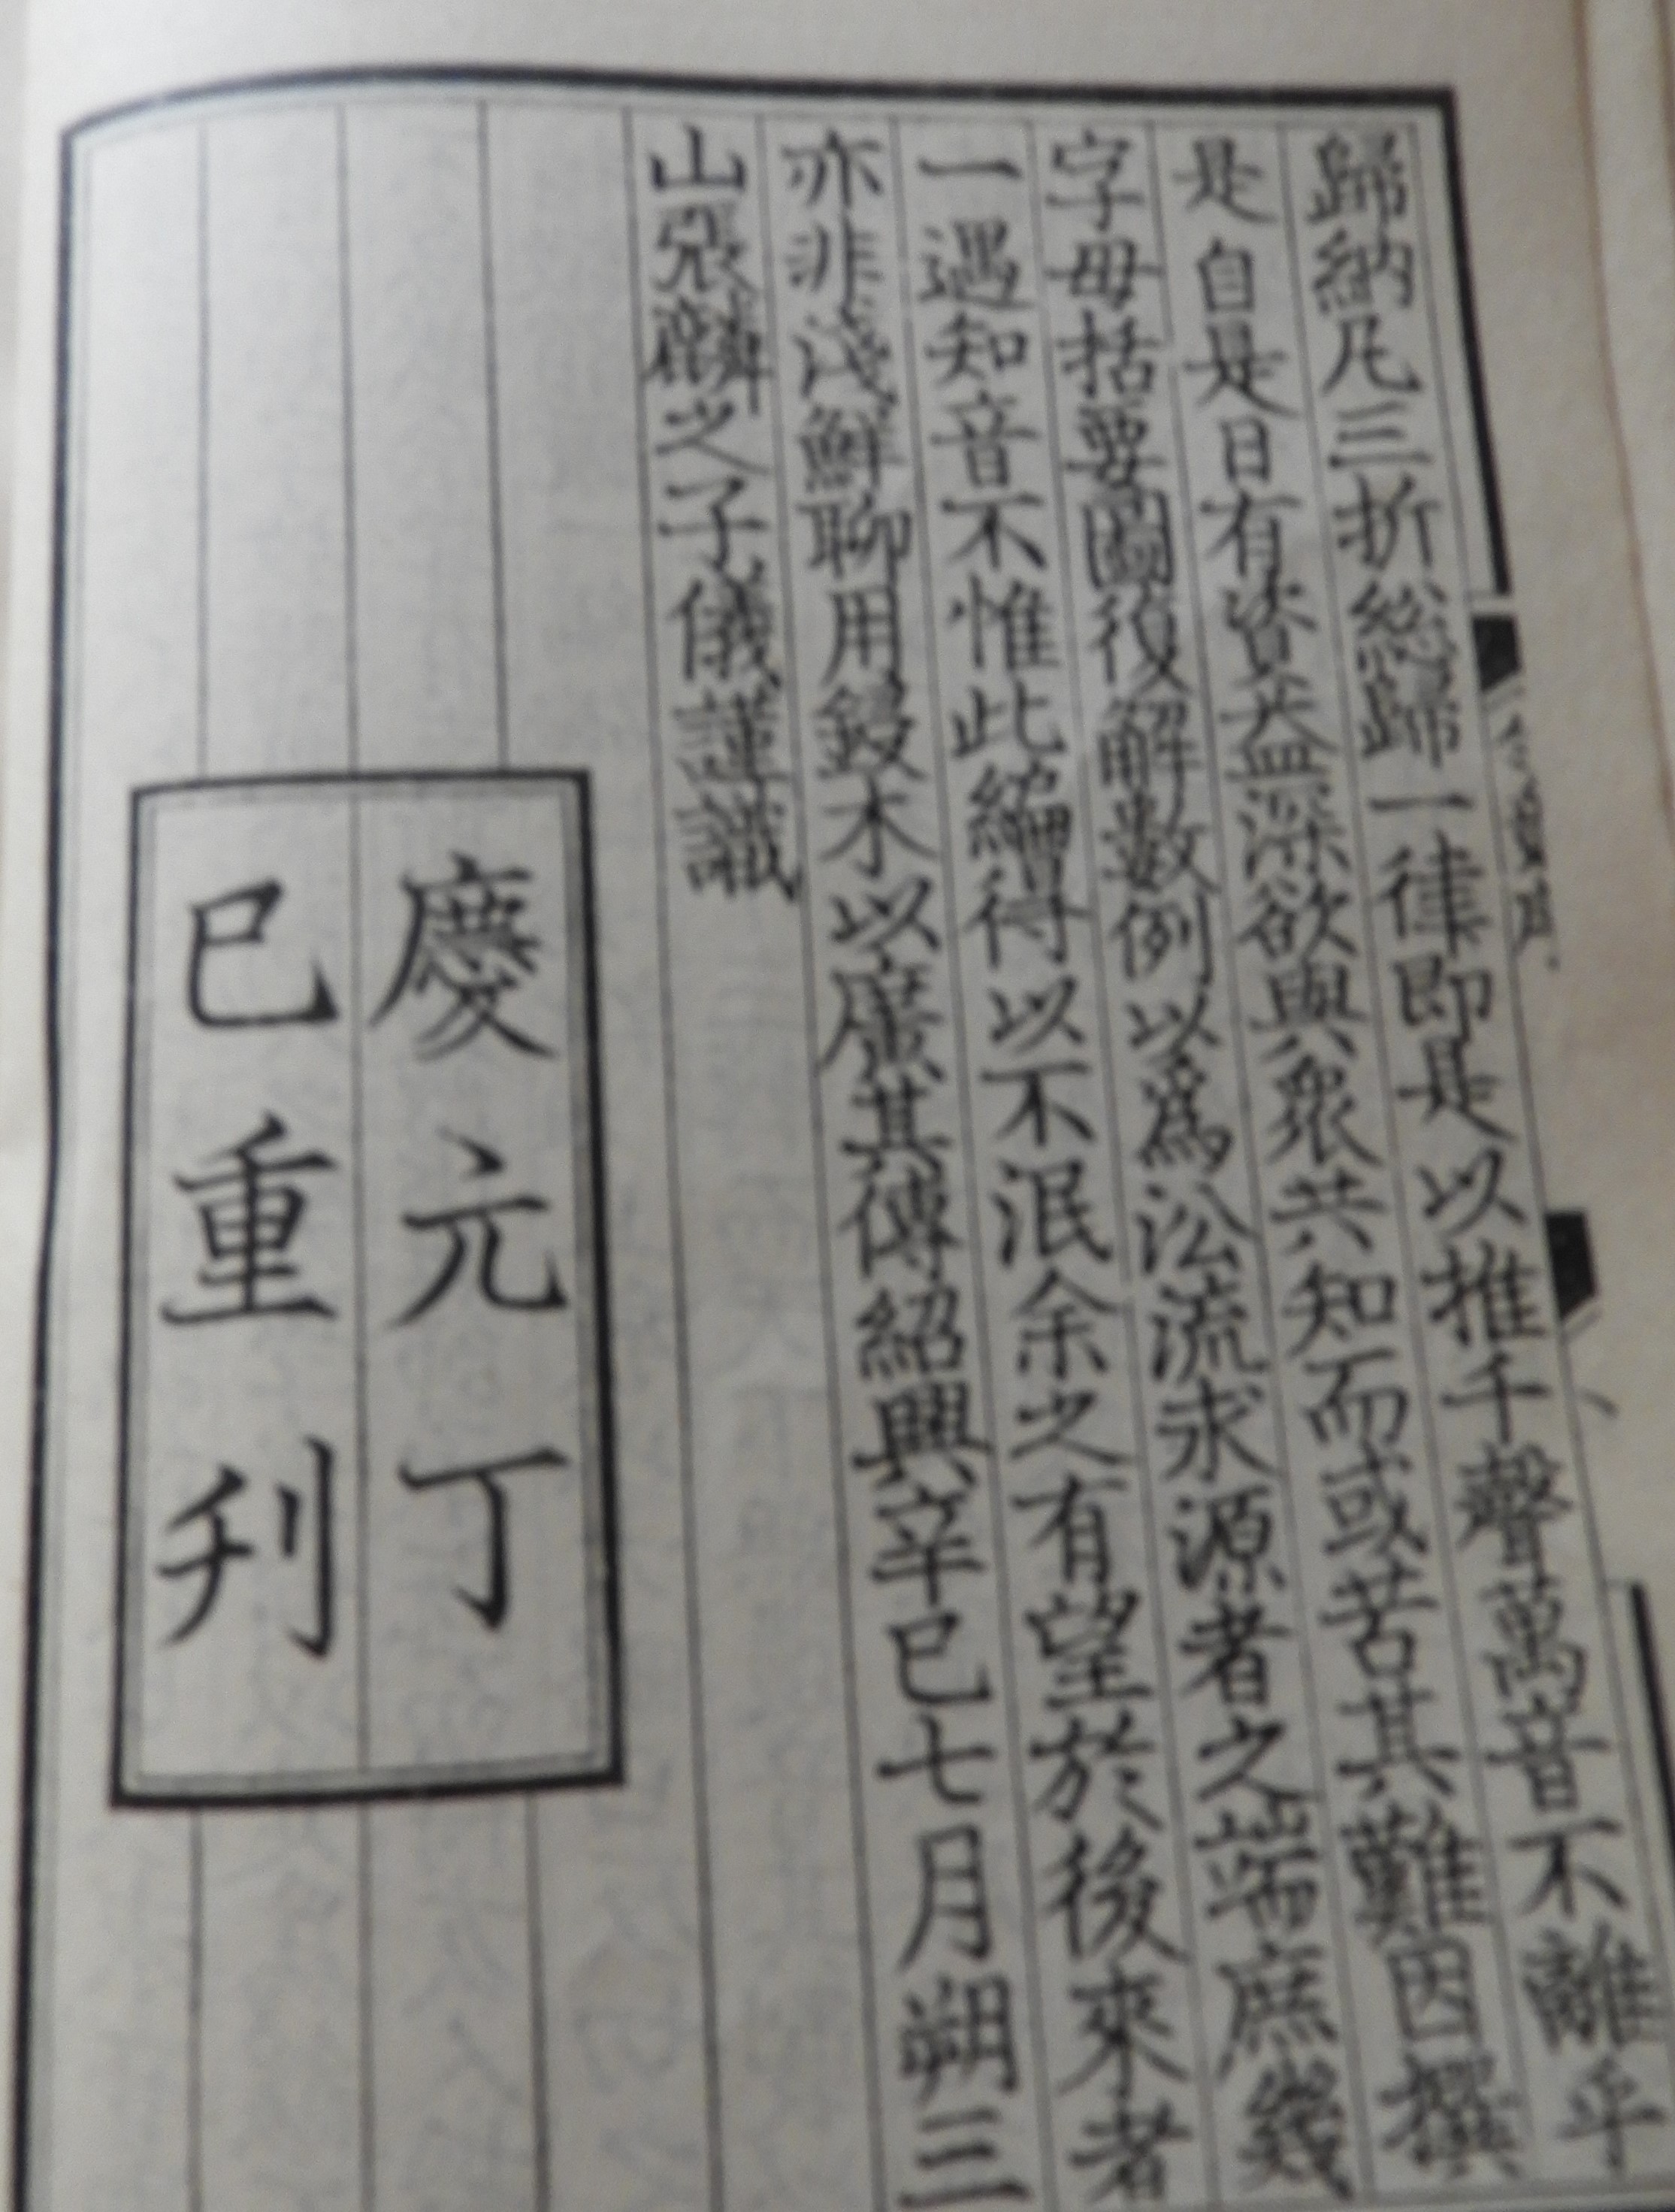 歸納凡三折總歸一律即是以推千聲萬音不離乎
是自是日有資益深欲與衆共知而或苦其難因撰
字母括要圖復解數例以爲沿流求源者之端庶幾
一遇知音不惟此編得以不泯余之有望於後來者
亦非淺鮮聊用鋟木以廣其傳紹興辛巳七月朔三
山張麟之子儀謹識
慶元丁
巳重刊